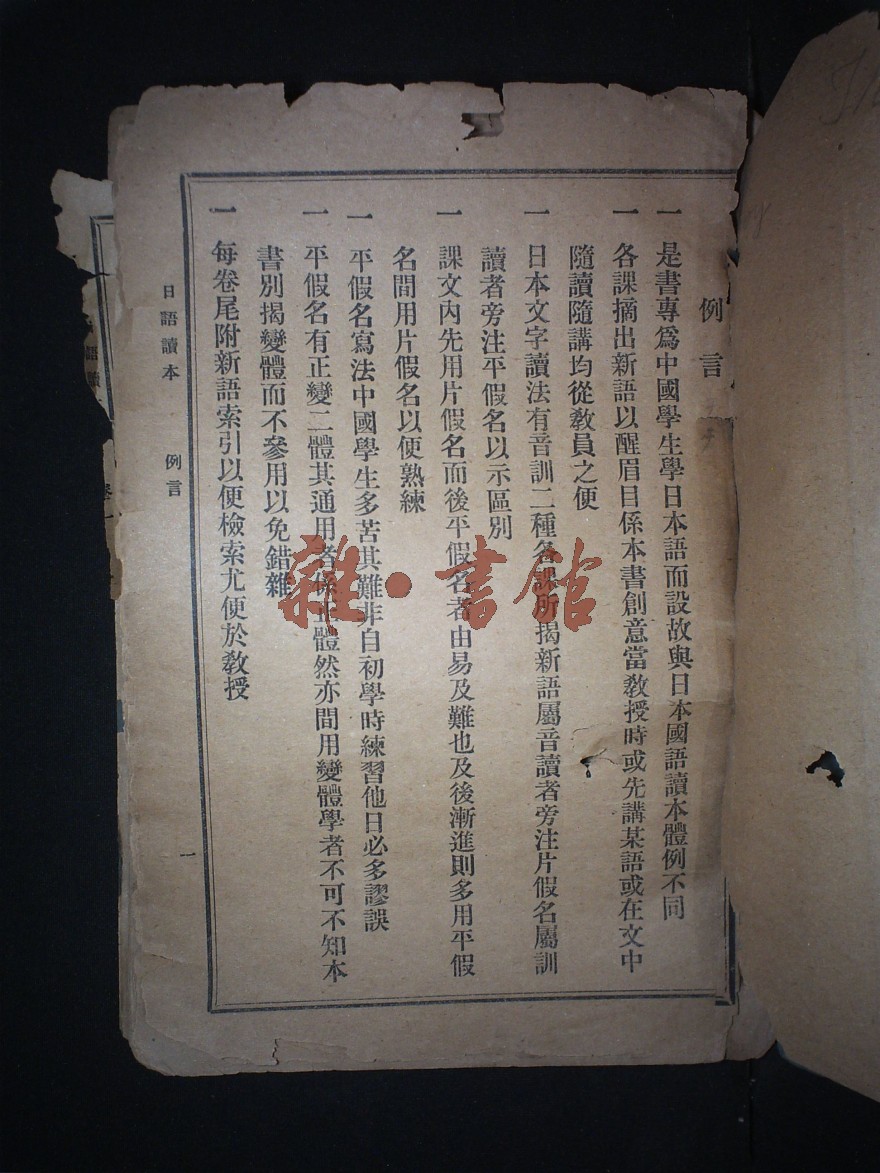 例言
一 是書專爲中國學生學日本語而設故與日本國語讀本體例不同
一 各課摘出新語以醒眉目係本書創意當敎授時或先講某語或在文中
隨讀隨講均從敎員之便
一 日本文字讀法有音訓二種各課所揭新語屬音讀者旁注片假名屬訓
讀者旁注平假名以示區別
一 課文內先用片假名而後平假名者由易及難也及後漸進則多用平假
名間用片假名以便熟練
一 平假名寫法中國學生多苦其難非自初學時練習他日必多謬誤
一 平假名有正變二體其通用者係正體然亦間用變體學者不可不知本
書別揭變體而不參用以免錯雜
一 每卷尾附新語索引以便檢索尤便於敎授
日語讀本 例言 一
雜·書館